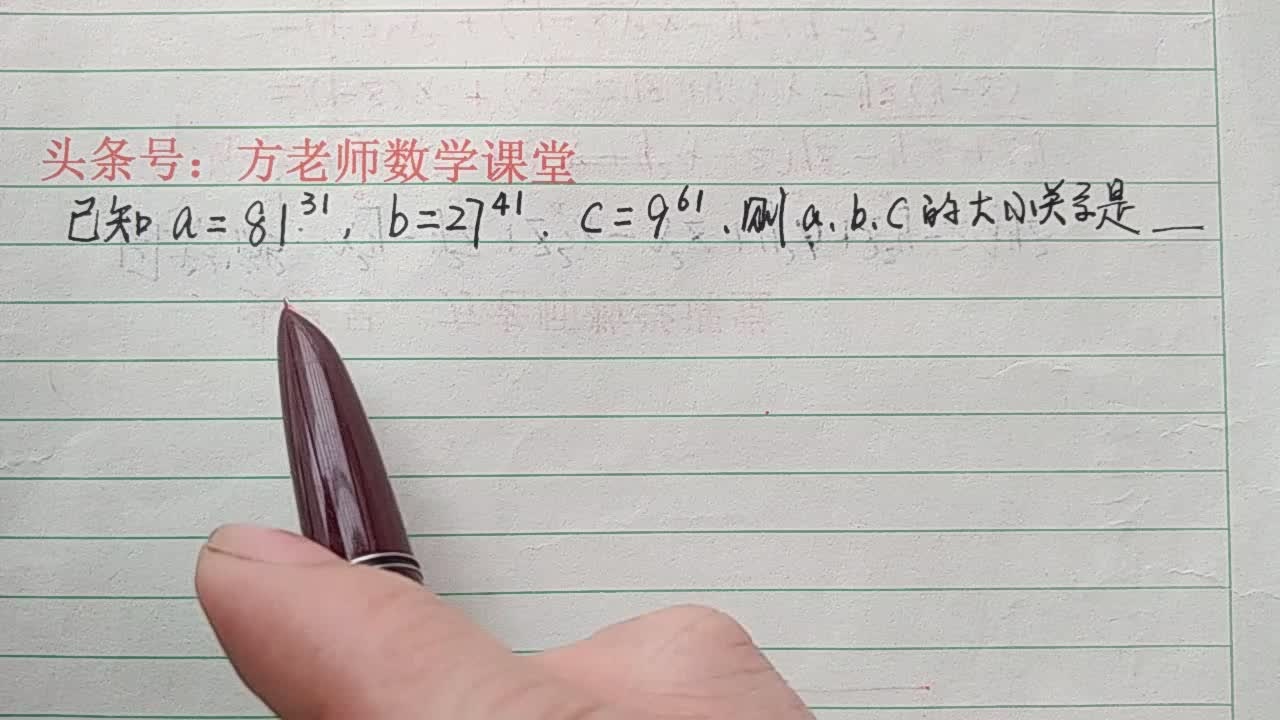 头条号：方老师数学课堂
已知 a=81³¹, b=27⁴¹, c=9⁶¹, 则 a、b、c 的大小关系是 __